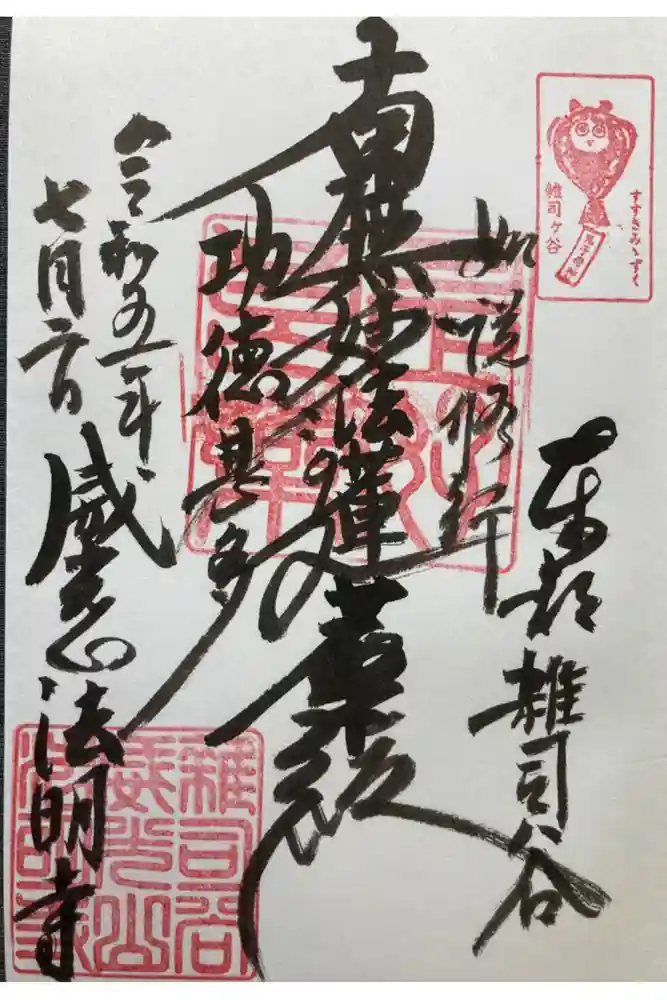 雑司ヶ谷
すすきみみずく
東都雑司谷
如説修行
南無妙法蓮華経
功徳甚多
令和五年
七月二日
威光山法明寺
雑司谷
威光山
法明寺